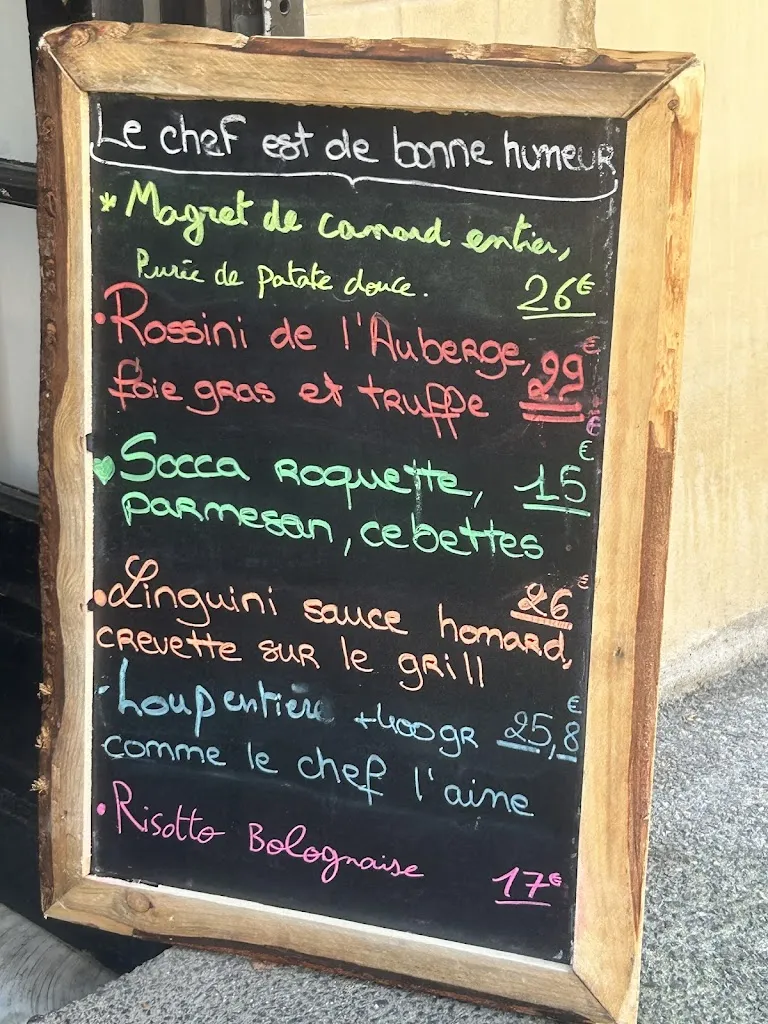 Le chef est de bonne humeur
* Magret de canard entier,
Purée de patate douce. 26€
• Rossini de l'Auberge,
foie gras et truffe 29€
€
Socca roquette, 15€
parmesan, cebettes
• Linguini sauce homard, 26€
crevette sur le grill
- Loup entière +400gr 25,8€
comme le chef l'aime
• Risotto Bolognaise 17€